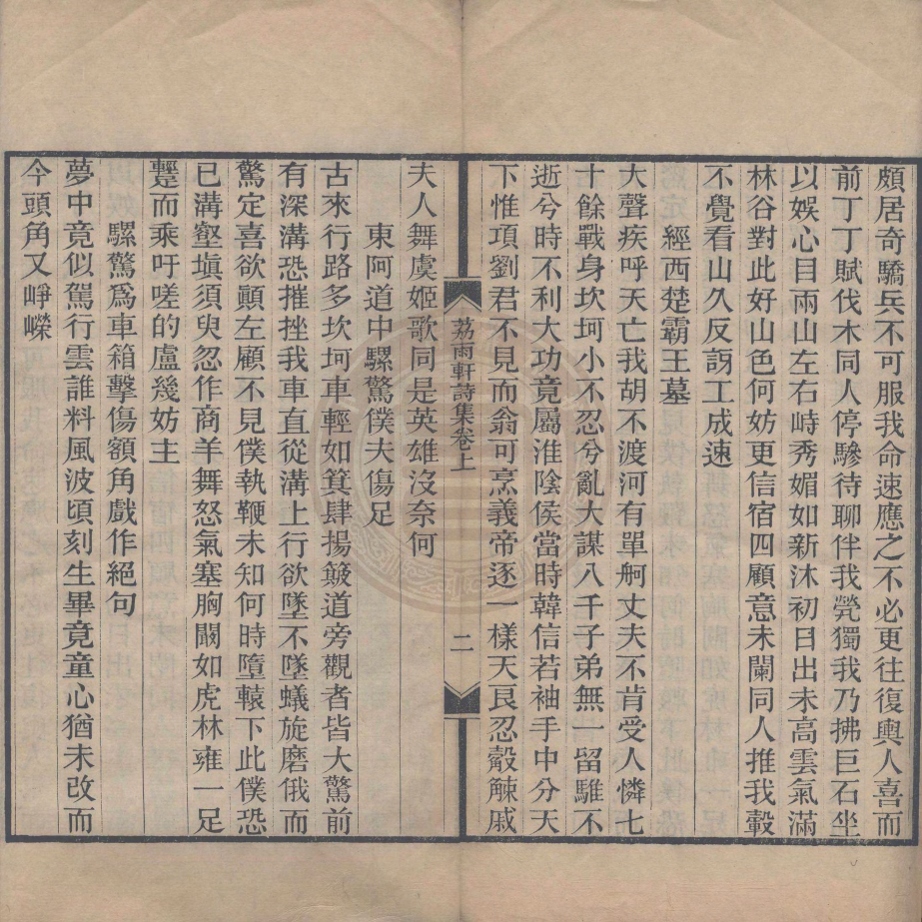 頗居奇驕兵不可服我命速應之不必更往復輿人喜而
前丁丁賦伐木同人停驂待聊伴我煢獨我乃拂巨石坐
以娛心目兩山左右峙秀媚如新沐初日出未高雲氣滿
林谷對此好山色何妨更信宿四顧意未闌同人推我轂
不覺看山久反訝工成速
經西楚霸王墓
大聲疾呼天亡我胡不渡河有單舸丈夫不肯受人憐七
十餘戰身坎坷小不忍兮亂大謀八千子弟無一留騅不
逝兮時不利大功竟屬淮陰侯當時韓信若袖手中分天
下惟項劉君不見而翁可烹義帝逐一樣天良忍觳觫戚
荔雨軒詩集卷上
二
夫人舞虞姬歌同是英雄沒奈何
東阿道中騾驚僕夫傷足
古來行路多坎坷車輕如箕肆揚簸道旁觀者皆大驚前
有深溝恐摧挫我車直從溝上行欲墜不墜蟻旋磨俄而
驚定喜欲顚左顧不見僕執鞭未知何時墮轅下此僕恐
已溝壑塡須臾忽作商羊舞怒氣塞胸闞如虎林雍一足
躄而乘吁嗟的盧幾妨主
騾驚爲車箱擊傷額角戲作絕句
夢中竟似駕行雲誰料風波頃刻生畢竟童心猶未改而
今頭角又崢嶸